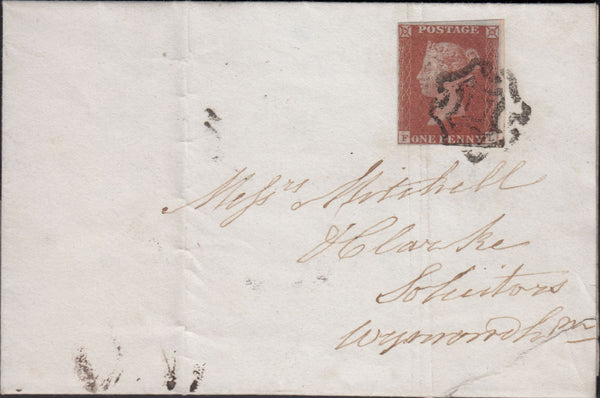 POSTAGE
ONE PENNY
F
Messrs Mitchell
& Clarke
Solicitors
Wymondham